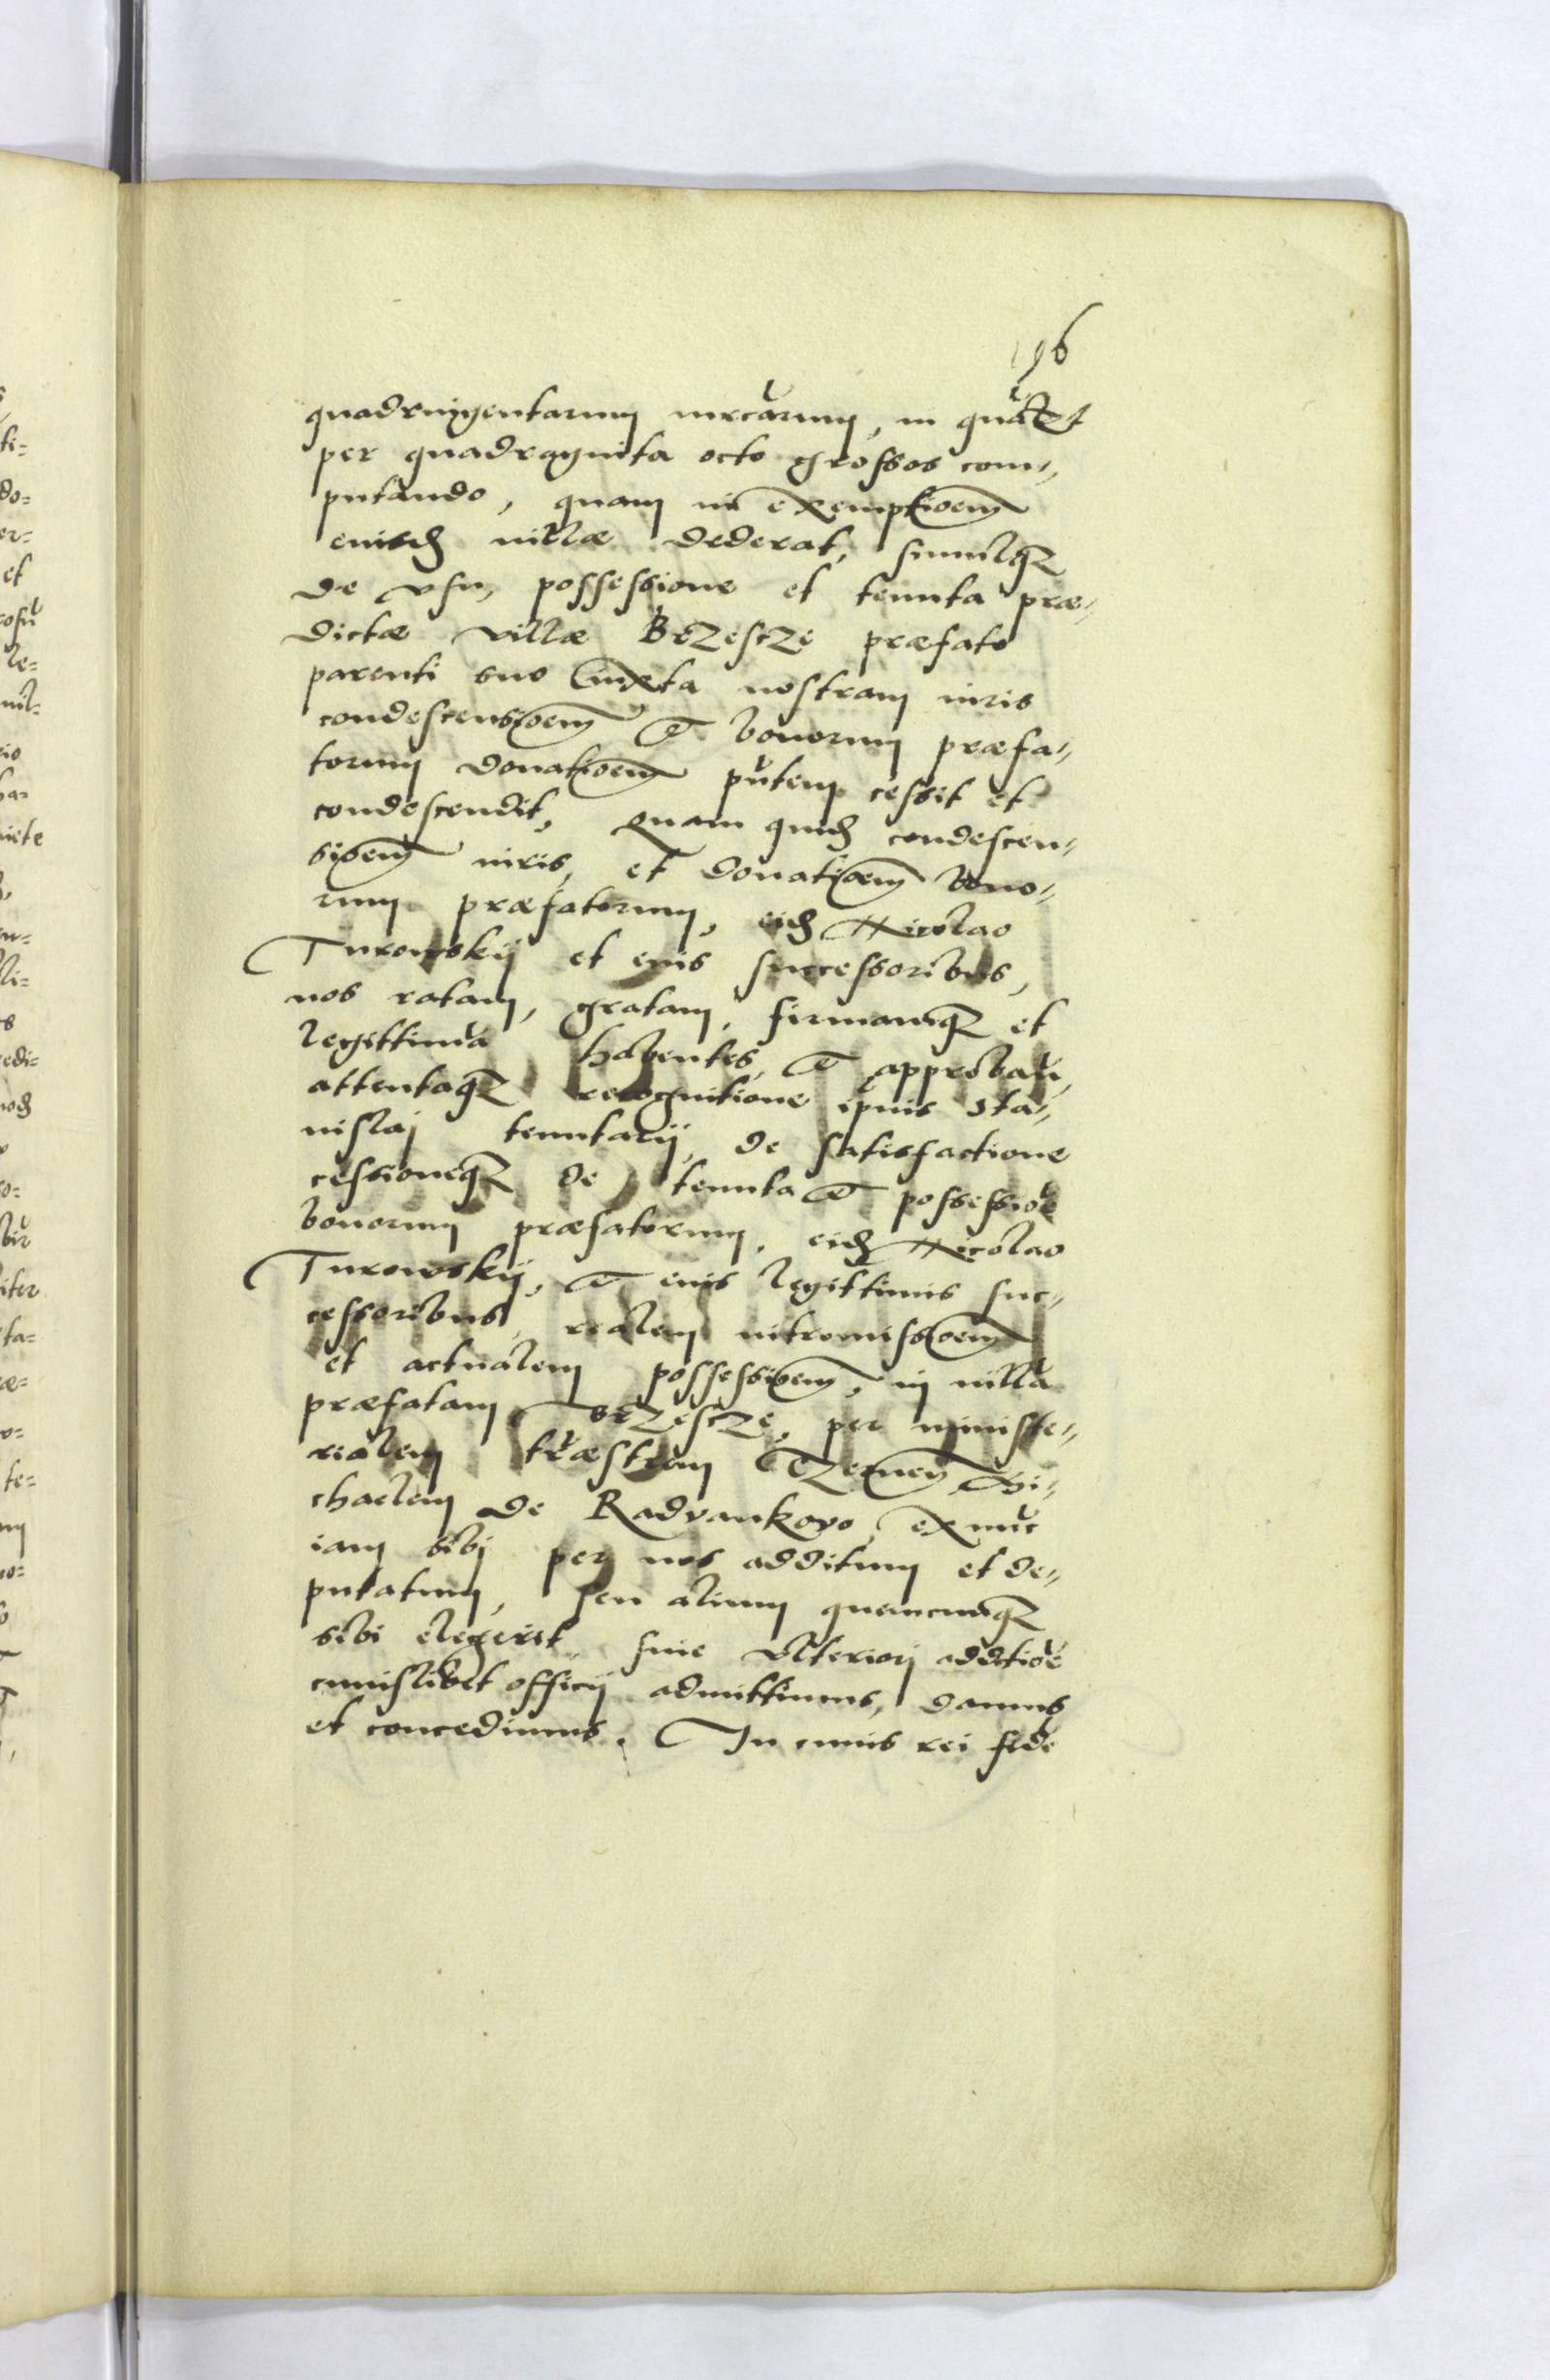 196
quadringentarum mrcarum, in quālt
per quadraginta octo grossos com„
putando, quam in exemptioem
eiusd villæ dederat, simulq
de vsu, possessione et tenuta præ„
dictæ villæ Brzescze præfato
parenti suo iuxta nostram iuris
condescensioem et bonorum præfa„
torum donatioem pūtem cessit et
condescendit, Quam quid condescen„
sioem iuris, et donatioem bono„
rum præfatorum, eid Nicolao
Turowskij et eius successoribus,
nos ratam, gratam, firmamq et
legittimā habentes, et approbāt,
attentaq recognitione ipius Sta„
nislaj tenutarij, de satisfactione
cessioneq de tenuta et possessiōe
bonorum præfatorum, eid Nicolao
Turowskij, et eius legittimis suc„
cessoribus, realem intromissioem
et actualem possessioem, in villā
præfatam Brzescze, per ministe„
rialem trrestrem Czernen Mi„
chaelem de Radvankovo, ex nūc
iam sibj per nos additum et de„
putatum, seu alium quemcunq
sibi elegerit, sine vlteriorj additiōe
cuiuslibet officij admittimus, damus
et concedimus. In cuius rei fidē